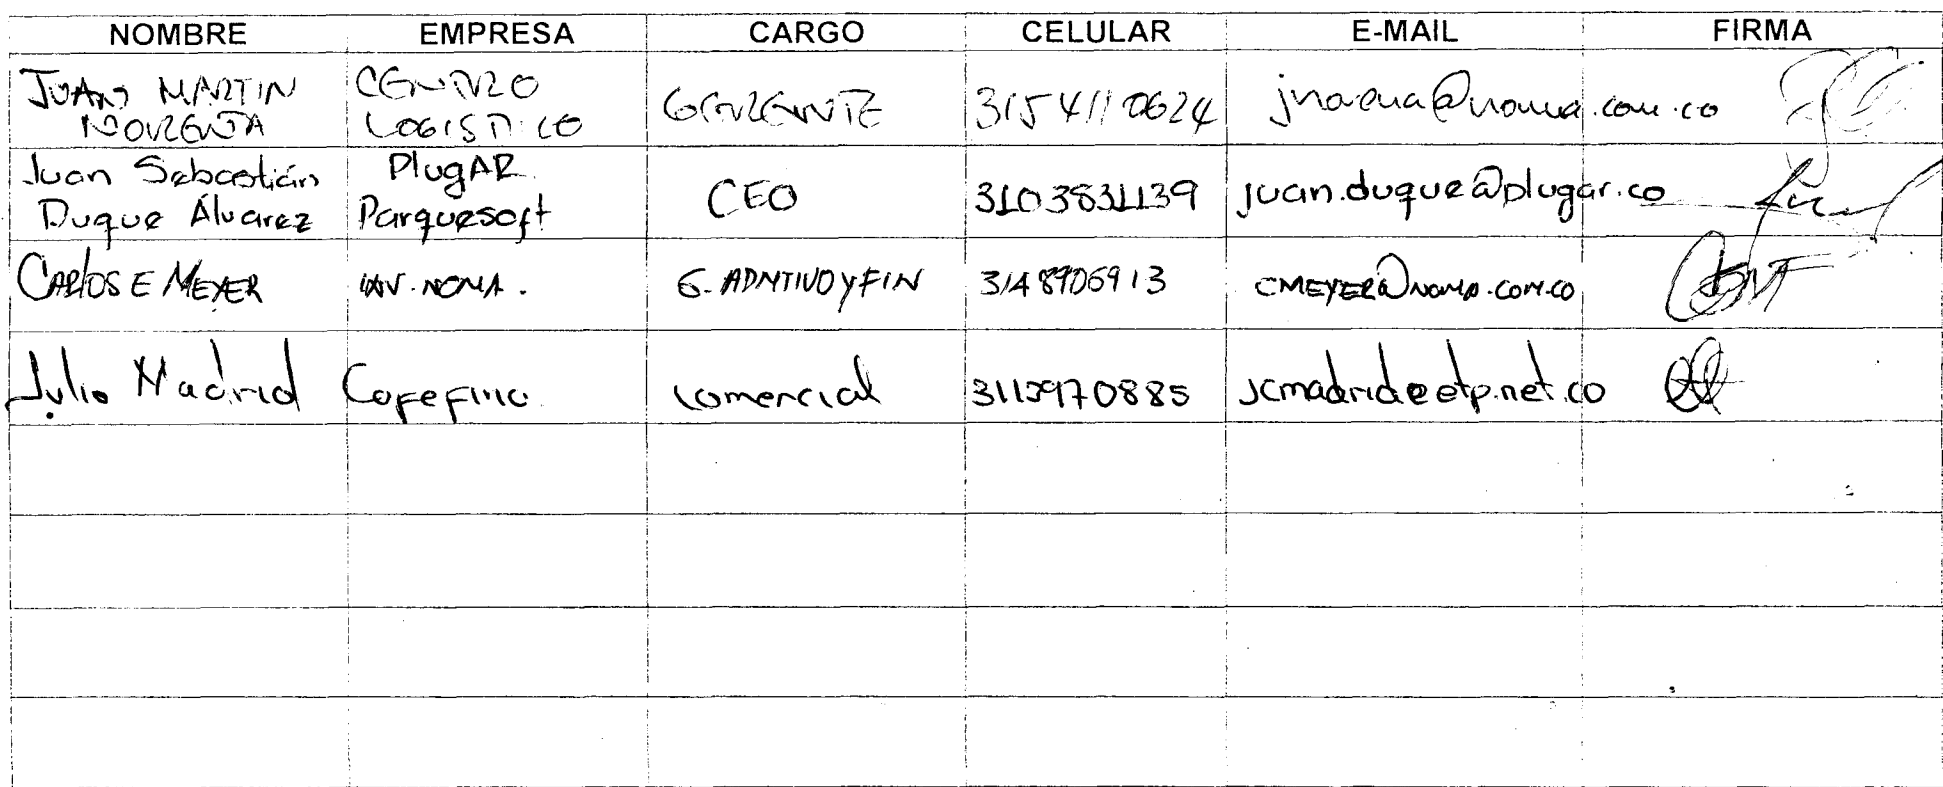 NOMBRE EMPRESA CARGO CELULAR E-MAIL FIRMA
JUAN MARTIN CENTRO
NOREÑA LOGISTICO GERENTE 3154110624 @noma.com.co
Juan Sebastián PlugAR
Duque Álvarez Parquesoft CEO 3103831139 juan.duque@plugar.co
CARLOS E MEYER INV. NOMA. G. ADMTIVO Y FIN 3148906913 CMEYER@NOMA.COM.CO
Julio Madrid Cafefino comercial 3112970885 jcmadrid@etp.net.co